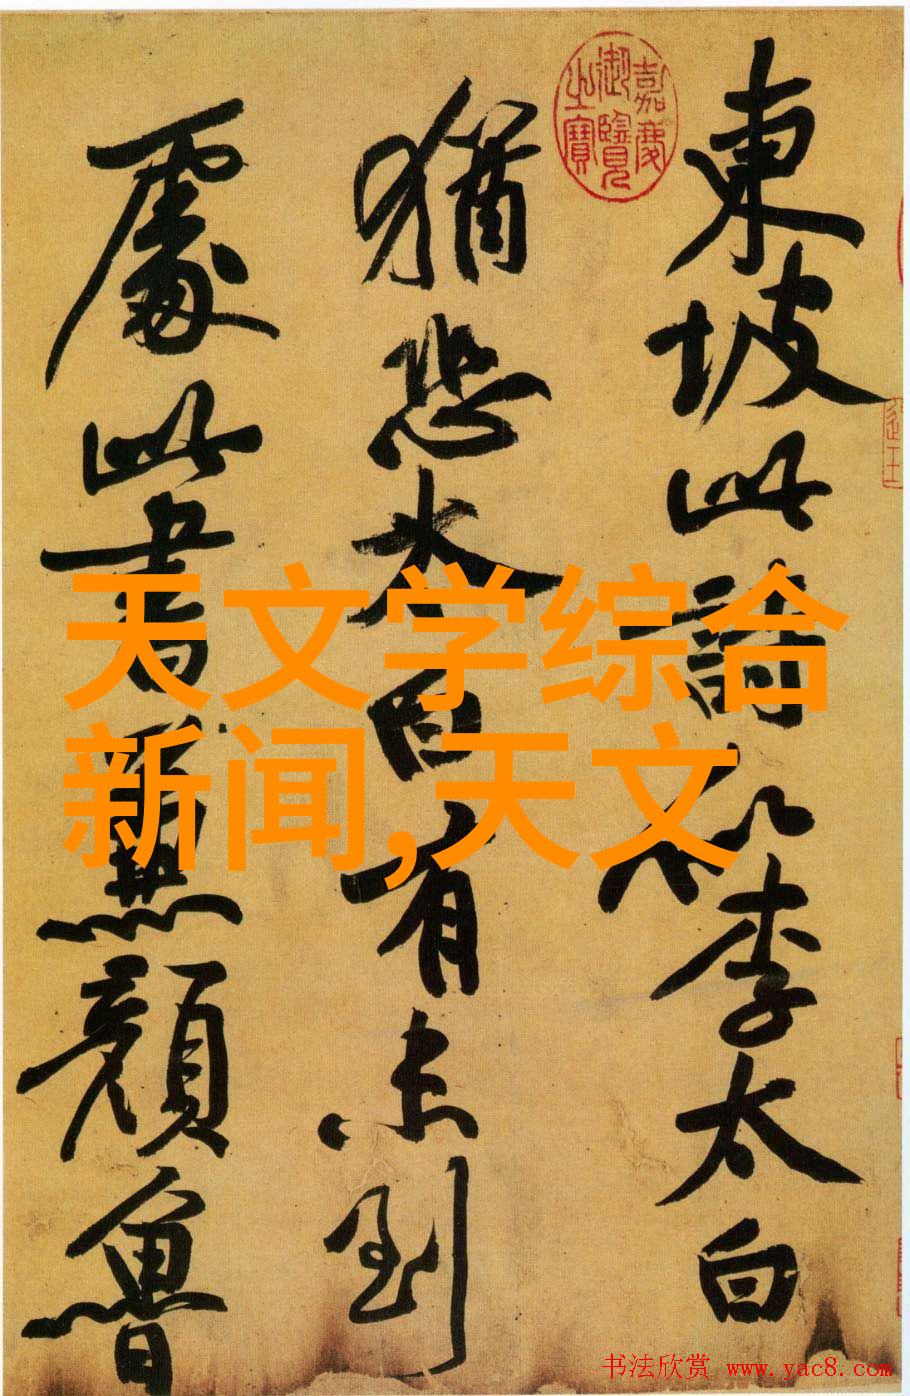 東坡此詩似李太白
猶恐太白有未到
處此書兼顏魯
嘉慶
御覽
之寶
天文学综合
新闻,天文
书法欣赏 www.yac8.com